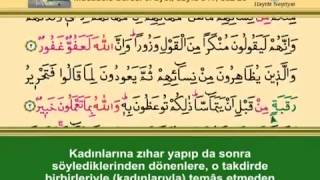 وَاِنَّهُمْ لَيَقُولُونَ مُنْكَرًا مِنَ الْقَوْلِ وَزُورًاۜ وَاِنَّ اللّٰهَ لَعَفُوٌّ غَفُورٌ ﴿٢﴾
وَالَّذ۪ينَ يُظَاهِرُونَ مِنْ نِسَٓائِهِمْ ثُمَّ يَعُودُونَ لِمَا قَالُوا فَتَحْر۪يرُ
رَقَبَةٍ مِنْ قَبْلِ اَنْ يَتَمَٓاسَّاۜ ذٰلِكُمْ تُوعَظُونَ بِه۪ۜ وَاللّٰهُ بِمَا تَعْمَلُونَ خَب۪يرٌ ﴿٣﴾
Kadınlarına zıhar yapıp da sonra
söylediklerinden dönenlere, o takdirde
birbirleriyle (kadınlarıyla) temâs etmeden